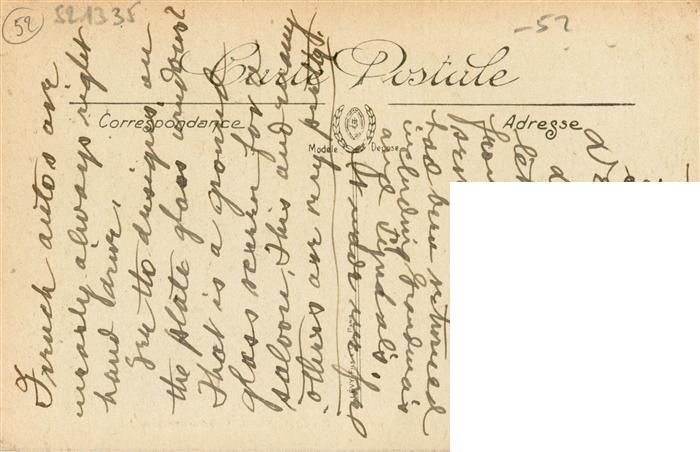 52
521335
-52
Carte Postale
Correspondance
Adresse
Modèle Déposé
French autos are
nearly always right
hand drive.
See the designs on
the plate glass windows?
That is a ground
glass screen for a
saloon. This and many
others are very pretty.
had been returned
including Grandma's
and Tyndal's,
It made me